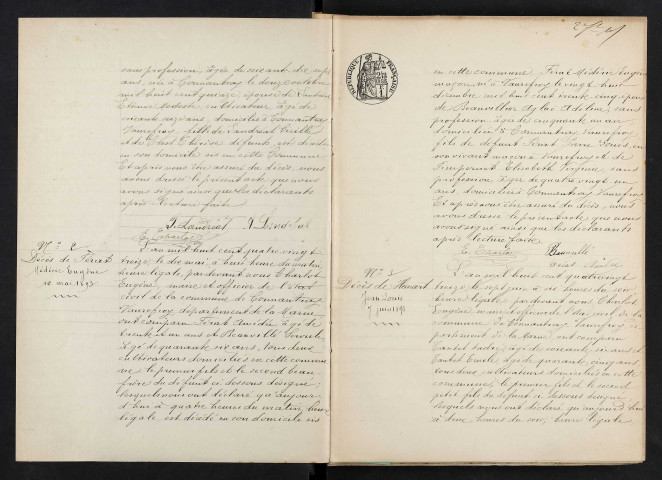 sans profession, âgée de soixante dix sept
ans, née à Connantray le deux octobre
mil huit cent quinze, épouse de
Etienne Modeste, cultivateur, âgé de
soixante onze ans, domicilié à Connantray
Vaurefroy, fille de
et de Thérèse défunts, est décédée
en son domicile sis en cette Commune
Et après nous être assuré du décès, nous
avons dressé le présent acte que nous
avons signé ainsi que les déclarants
après lecture faite
E. Charlot
N° 2
Décès de Férat
Médéric Eugène
10 mai 1893
L'an mil huit cent quatre vingt
treize le dix mai à huit heures du matin
heure légale, par devant nous Charlot
Eugène, maire et officier de l'Etat
civil de la commune de Connantray
Vaurefroy département de la Marne
ont comparu Férat Amédée âgé de
trente et un ans et Bonvillé
âgé de quarante six ans, tous deux
cultivateurs domiciliés en cette commu
ne le premier fils et le second beau
frère du défunt ci dessous désigné;
lesquels nous ont déclaré qu'aujour
d'hui à quatre heures du matin, heure
légale est décédé en son domicile sis
RÉPUBLIQUE FRANÇAISE
en cette commune Férat Médéric Eugène
maçon né à Vaurefroy le vingt huit
décembre mil huit cent trente cinq, époux
de Bonvillé Aglaé Adeline, sans
profession âgée de cinquante un ans
domiciliée à Connantray Vaurefroy
fils de défunt Férat Pierre Louis en
son vivant maçon à Vaurefroy et de
Elisabeth Virginie, sans
profession âgée de quatre vingt un
ans domiciliée à Connantray Vaurefroy
Et après nous être assuré du décès, nous
avons dressé le présent acte que nous
avons signé ainsi que les déclarants
après lecture faite
E. Charlot Bonvillé
N° 3
Décès de
Jean Louis
7 juin 1893
L'an mil huit cent quatre vingt
treize le sept juin à six heures du soir
heure légale, par devant nous Charlot
Eugène maire et officier de l'état civil de la
commune de Connantray Vaurefroy dé
partement de la Marne ont comparu
âgé de cinquante six ans et
Emile âgé de quarante cinq ans
tous deux cultivateurs domiciliés en cette
commune, le premier fils et le second
petit fils du défunt ci dessous désigné
lesquels nous ont déclaré qu'aujourd'hui
à deux heures du soir, heure légale